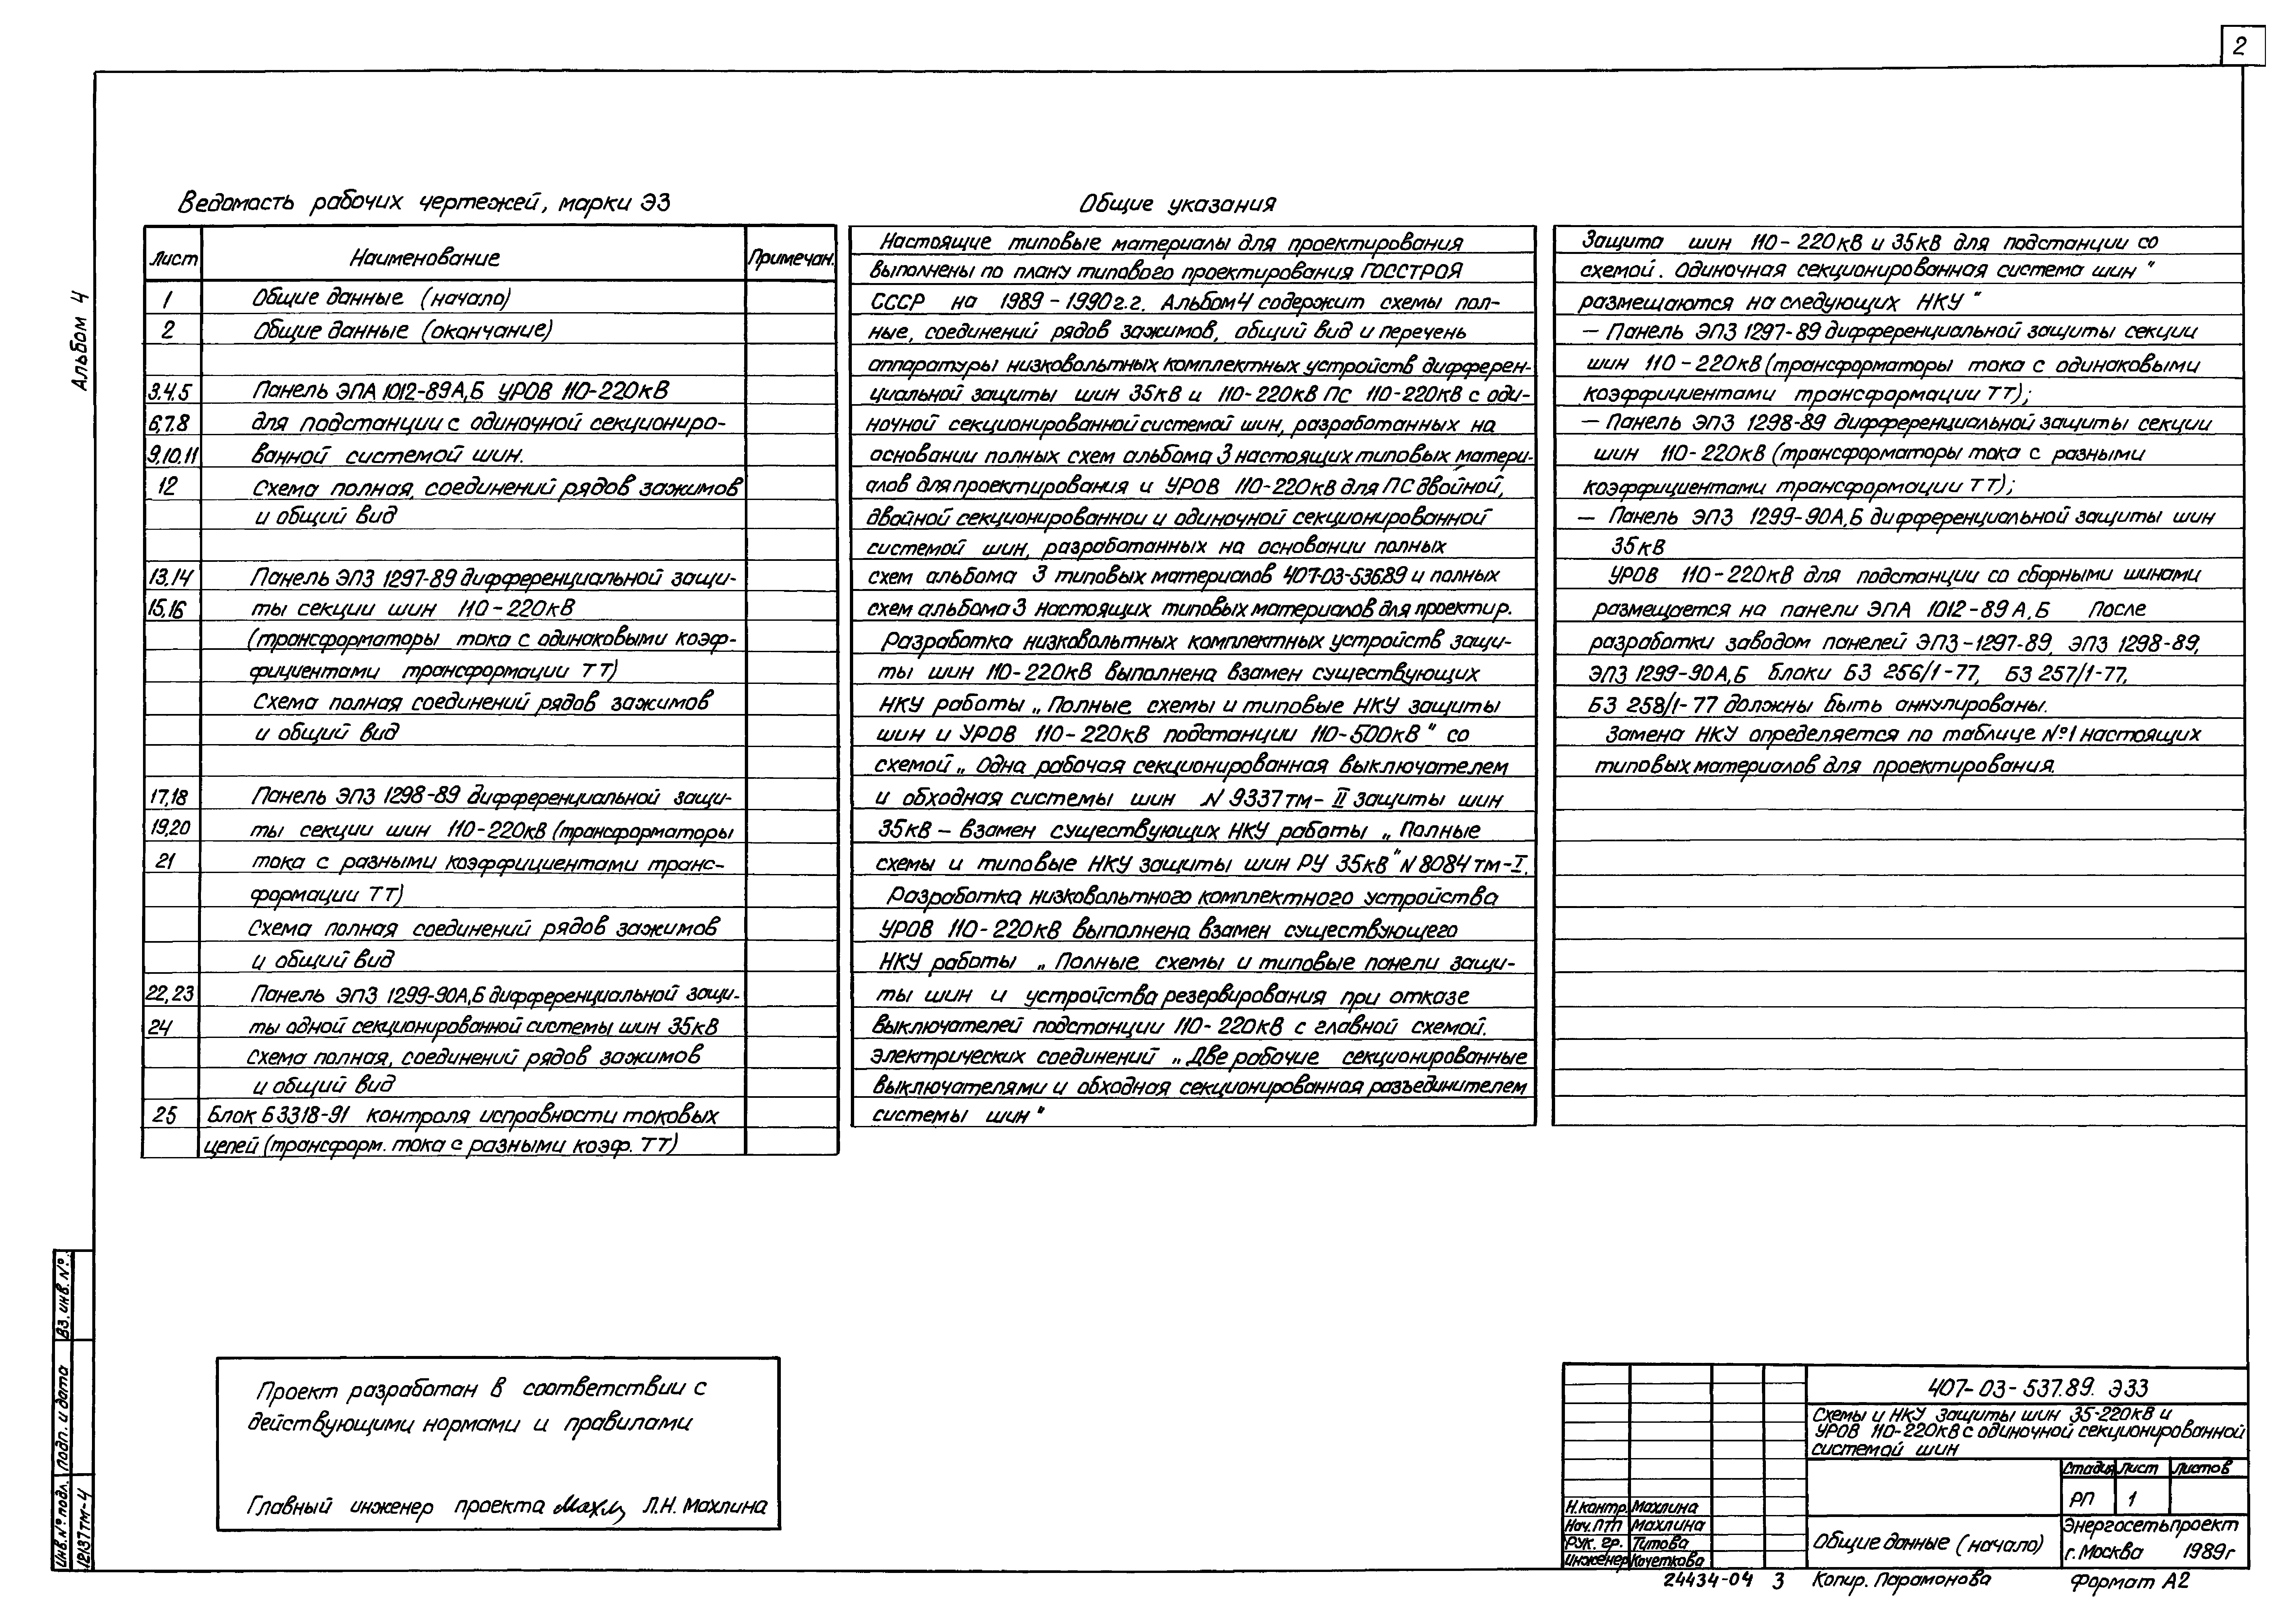 2
Альбом 4
Ведомасть рабочих чертежей, марки ЭЗ
Лист Наименование Примечан.
1 Общие данные (начало)
2 Общие данные (окончание)
3.4.5 Панель ЭПА 1012-89А,Б УРОВ 110-220кВ
6,7.8 для подстанции с одиночной секциониро-
9,10.11 ванной системой шин.
12 Схема полная, соединений рядов зажимов
и общий вид
13.14 Панель ЭПЗ 1297-89 дифференциальной защи-
15,16 ты секции шин 110-220кВ
(трансформаторы тока с одинаковыми коэф-
фициентами трансформации ТТ)
Схема полная соединений рядов зажимов
и общий вид
17,18 Панель ЭПЗ 1298-89 дифференциальной защи-
19,20 ты секции шин 110-220кВ (трансформаторы
21 тока с разными коэффициентами транс-
формации ТТ)
Схема полная соединений рядов зажимов
и общий вид
22,23 Панель ЭПЗ 1299-90А,Б дифференциальной защи-
24 ты одной секционированной системы шин 35кВ
Схема полная, соединений рядов зажимов
и общий вид
25 Блок БЗ318-91 контроля исправности токовых
цепей (трансформ. тока с разными коэф. ТТ)
Общие указания
Настоящие типовые материалы для проектирования
выполнены по плану типового проектирования ГОССТРОЯ
СССР на 1989-1990г.г. Альбом 4 содержит схемы пол-
ные, соединений рядов зажимов, общий вид и перечень
аппаратуры низковольтных комплектных устройств дифферен-
циальной защиты шин 35кВ и 110-220кВ ПС 110-220кВ с оди-
ночной секционированной системой шин, разработанных на
основании полных схем альбома 3 настоящих типовых матери-
алов для проектирования и УРОВ 110-220кВ для ПС двойной,
двойной секционированнои и одиночной секционированной
системой шин, разработанных на основании полных
схем альбома 3 типовых материалов 407-03-53689 и полных
схем альбома 3 настоящих типовых материалов для проектир.
Разработка низковольтных комплектных устройств защи-
ты шин 110-220кВ выполнена взамен существующих
НКУ работы „ Полные схемы и типовые НКУ защиты
шин и УРОВ 110-220кВ подстанции 110-500кВ" со
схемой „ Одна рабочая секционированная выключателем
и обходная системы шин N 9337тм-II защиты шин
35кВ - взамен существующих НКУ работы „ Полные
схемы и типовые НКУ защиты шин РУ 35кВ" N 8084тм-I.
Разработка низковольтного комплектного устройства
УРОВ 110-220кВ выполнена взамен существующего
НКУ работы „ Полные схемы и типовые понели защи-
ты шин и устройства резервирования при отказе
выключателей подстанции 110-220кВ с главной схемой.
электрических соединений „ Две рабочие секционированные
выключателями и обходная секционированная разъединителем
системы шин"
Защита шин 110-220кВ и 35кВ для подстанции со
схемой. Одиночная секционированная система шин "
размещаются на следующих НКУ "
— Панель ЭПЗ 1297-89 дифференциальной защиты секции
шин 110-220кВ (трансформаторы тока с одинаковыми
коэффициентами трансформации ТТ);
— Панель ЭПЗ 1298-89 дифференциальной защиты секции
шин 110-220кВ (трансформаторы тока с разными
коэффициентами трансформации ТТ);
— Панель ЭПЗ 1299-90А,Б дифференциальной защиты шин
35кВ
УРОВ 110-220кВ для подстанции со сборными шинами
размещается на панели ЭПА 1012-89А,Б После
разработки заводом панелей ЭПЗ-1297-89, ЭПЗ 1298-89,
ЭПЗ 1299-90А,Б блоки БЗ 256/1-77, БЗ 257/1-77,
БЗ 258/1-77 должны быть аннулированы.
Замена НКУ определяется по таблице №1 настоящих
типовых материалов для проектирования.
Проект разработан в соответствии с
действующими нормами и правилами
Главный инженер проекта Махл Л.Н. Махлина
Инв. № подл. Подп. и дата Вз. инв. №
12137тм-4
407-03-537.89. ЭЗЗ
Схемы и НКУ защиты шин 35-220кВ и
УРОВ 110-220кВ с одиночной секционированной
системой шин
Стадия Лист Листов
РП 1
Н.контр. Махлина
Нач.ПТП Махлина
Рук. гр. Титова
Инженер Кочеткова
Общие данные (начало)
Энергосетьпроект
г. Москва 1989г
24434-04 3 Копир. Парамонова Формат А2